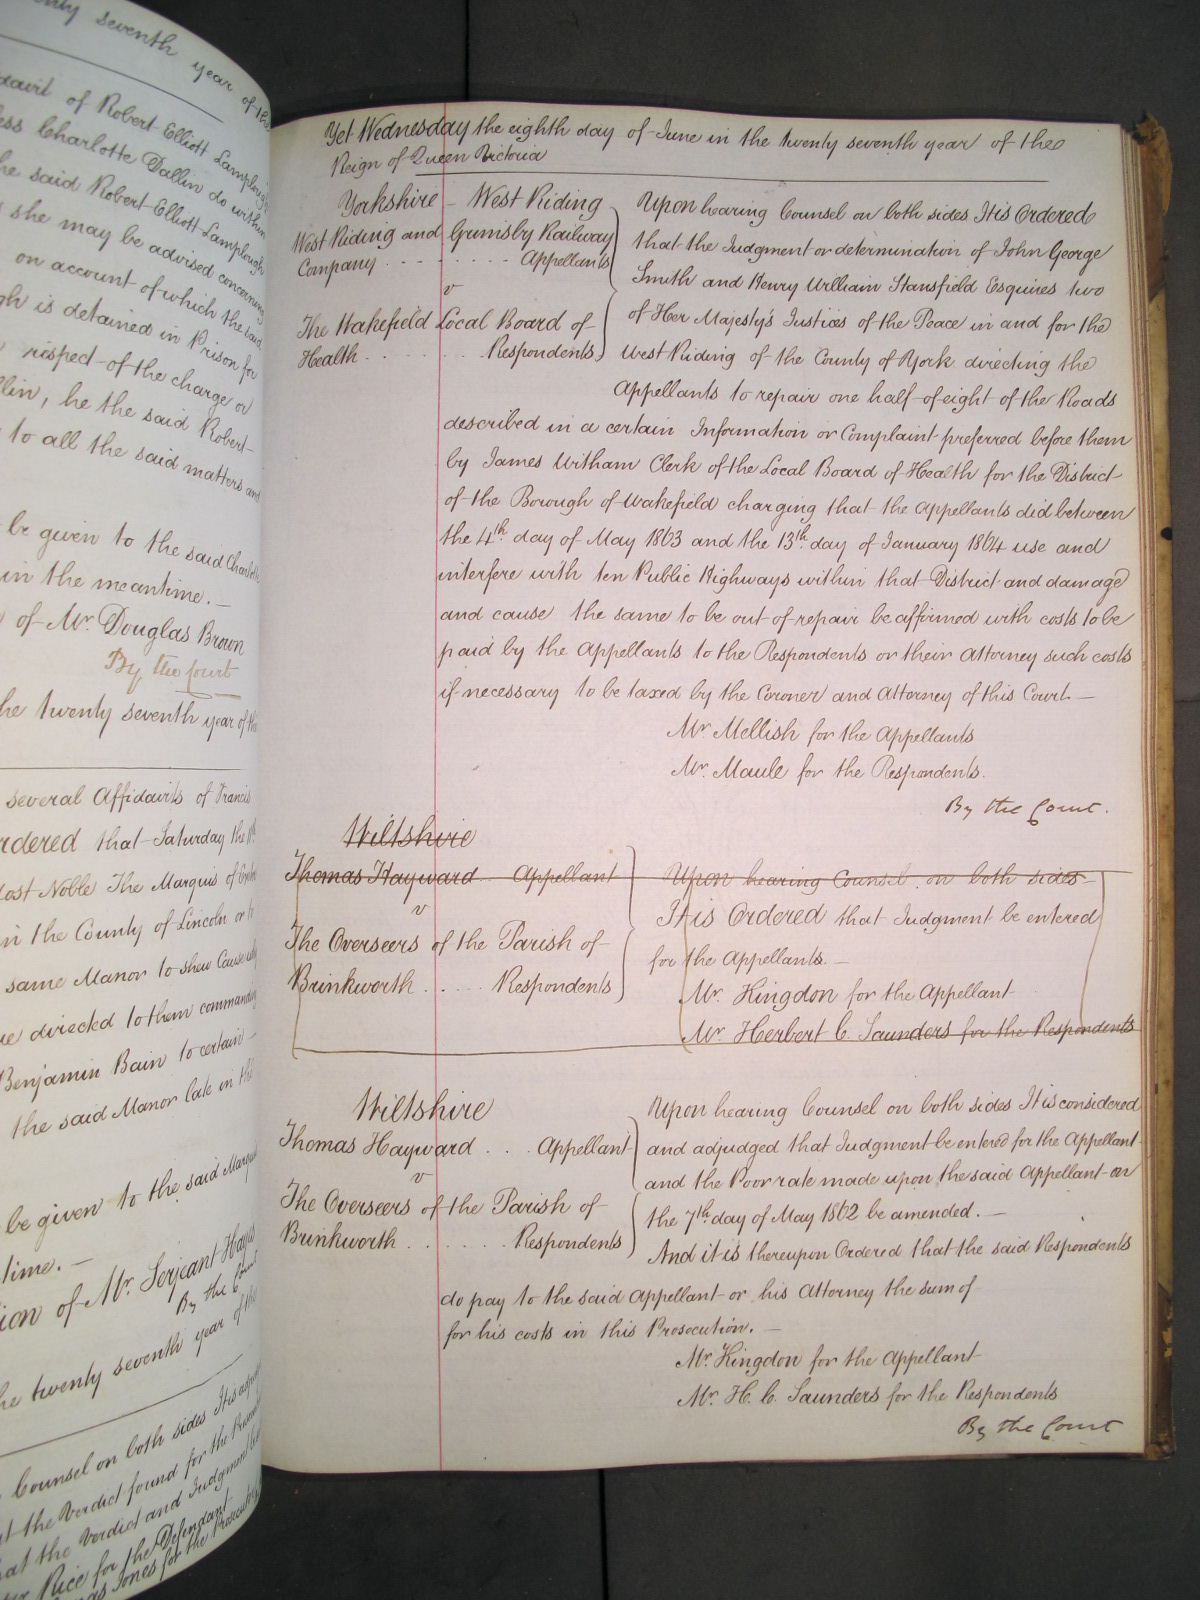 nty seventh year of the
davit of Robert Elliott Lamplough
less Charlotte Dallin do within
he said Robert Elliott Lamplough
s she may be advised concerning
on account of which the said
gh is detained in Prison for
respect of the charge or
llin, he the said Robert
to all the said matters and
be given to the said Charlotte
in the meantime. —
of Mr. Douglas Brown
By the Court
he twenty seventh year of the
several Affidavits of Francis
rdered that Saturday the
Most Noble The Marquis of
in the County of Lincoln or
same Manor to shew Cause
ue directed to them commanding
Benjamin Bain to certain
the said Manor late in the
be given to the said Marquis
time. —
ion of Mr. Serjeant Hayes
By the Court
he twenty seventh year of the
Counsel on both sides It is
t the Verdict found for the
hat the Verdict and Judgment
Price for the Defendant
Jones for the Prosecutor
Yet Wednesday the eighth day of June in the twenty seventh year of the
Reign of Queen Victoria
Yorkshire – West Riding
West Riding and Grimsby Railway
Company . . . . . . . . Appellants
v
The Wakefield Local Board of
Health . . . . . . . Respondents
Upon hearing Counsel on both sides It is Ordered
that the Judgment or determination of John George
Smith and Henry William Stansfield Esquires two
of Her Majesty's Justices of the Peace in and for the
West Riding of the County of York directing the
Appellants to repair one half of eight of the Roads
described in a certain Information or Complaint preferred before them
by James Witham Clerk of the Local Board of Health for the District
of the Borough of Wakefield charging that the Appellants did between
the 4th day of May 1863 and the 13th day of January 1864 use and
interfere with ten Public Highways within that District and damage
and cause the same to be out of repair be affirmed with costs to be
paid by the Appellants to the Respondents or their Attorney such costs
if necessary to be taxed by the Coroner and Attorney of this Court. —
Mr. Mellish for the Appellants
Mr. Maule for the Respondents.
By the Court.
Wiltshire
Thomas Hayward Appellant
v
The Overseers of the Parish of
Brinkworth . . . . . Respondents
Upon hearing Counsel on both sides
It is Ordered that Judgment be entered
for the Appellants. —
Mr. Kingdon for the Appellant
Mr. Herbert C. Saunders for the Respondents
Wiltshire
Thomas Hayward . . . Appellant
v
The Overseers of the Parish of
Brinkworth . . . . . . . Respondents
Upon hearing Counsel on both sides It is considered
and adjudged that Judgment be entered for the Appellant
and the Poor rate made upon the said Appellant on
the 7th day of May 1862 be amended. —
And it is thereupon Ordered that the said Respondents
do pay to the said Appellant or his Attorney the sum of
for his costs in this Prosecution. —
Mr. Kingdon for the Appellant
Mr. H. C. Saunders for the Respondents
By the Court